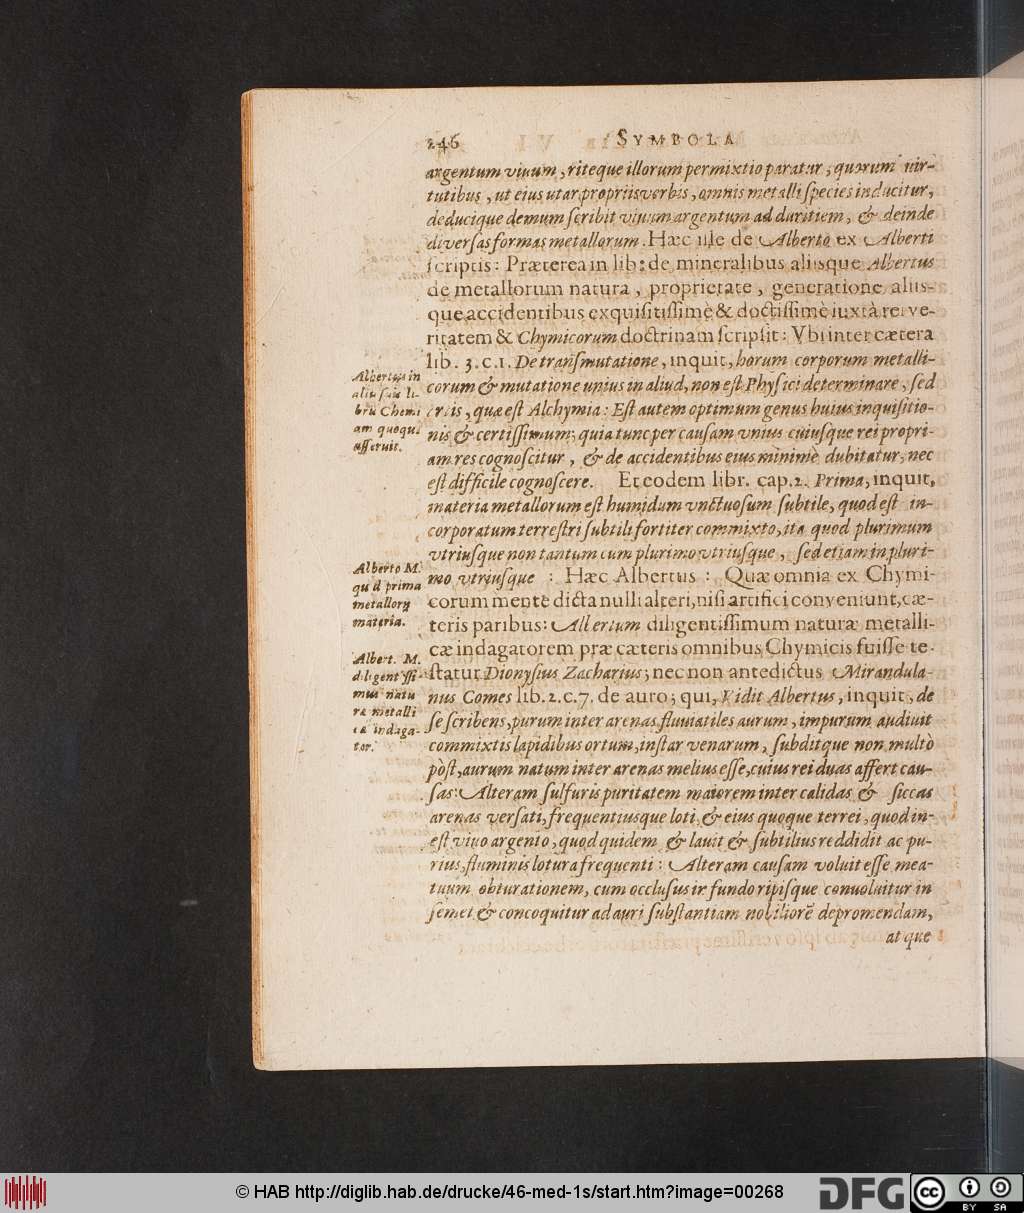 246 SYMBOLA
argentum viuum, riteque illorum permixtio paratur, quorum vir-
tutibus, ut eius utar propriis verbis, omnis metalli species inducitur,
deducique demum scribit viuum argentum ad duritiem, & deinde
diversas formas metallorum. Hæc ille de Alberto ex Alberti
scriptis: Præterea in lib: de mineralibus aliisque Albertus
de metallorum natura, proprietate, generatione aliis-
que accidentibus exquisitissimè & doctissimè iuxtà rei ve-
ritatem & Chymicorum doctrinam scripsit: Vbi inter cætera
lib. 3. c. 1. De transmutatione, inquit, horum corporum metalli-
corum & mutatione unius in aliud, non est Physici determinare, sed
artis, quæ est Alchymia: Est autem optimum genus huius inquisitio-
nis & certissimum; quia tunc per causam vnius cuiusque rei propri-
am res cognoscitur, & de accidentibus eius minimè dubitatur, nec
est difficile cognoscere. Et eodem libr. cap. 2. Prima, inquit,
materia metallorum est humidum vnctuosum subtile, quod est in-
corporatum terrestri subtili fortiter commixto, ita quod plurimum
vtriusque non tantum cum plurimo vtriusque, sed etiam in pluri-
mo vtriusque : Hæc Albertus : Quæ omnia ex Chymi-
corum mente dicta nulli alteri, nisi artifici conveniunt, cæ-
teris paribus: Albertum diligentissimum naturæ metalli-
cæ indagatorem præ cæteris omnibus Chymicis fuisse te-
statur Dionysius Zacharius; nec non antedictus Mirandula-
nus Comes lib. 2. c. 7. de auro; qui, Vidit Albertus, inquit, de
se scribens, purum inter arenas fluuiatiles aurum, impurum audiuit
commixtis lapidibus ortum, instar venarum, subditque non multò
pòst, aurum natum inter arenas melius esse, cuius rei duas affert cau-
sas: Alteram sulfuris puritatem maiorem inter calidas & siccas
arenas versati, frequentiusque loti, & eius quoque terrei, quod in-
est viuo argento, quod quidem & lauit & subtilius reddidit ac pu-
rius, fluminis lotura frequenti: Alteram causam voluit esse mea-
tuum obturationem, cum occlusus in fundo ripisque convoluitur in
semet & concoquitur ad auri substantiam nobiliorē depromendam,
atque
Albertus in
aliis suis li-
bris Chemi
am quoque
asseruit.
Alberto M.
quid prima
metallorū
materia.
Albert. M.
diligentissi-
mus natu
ræ metalli
cæ indaga-
tor.
© HAB http://diglib.hab.de/drucke/46-med-1s/start.htm?image=00268
DFG
cc BY SA